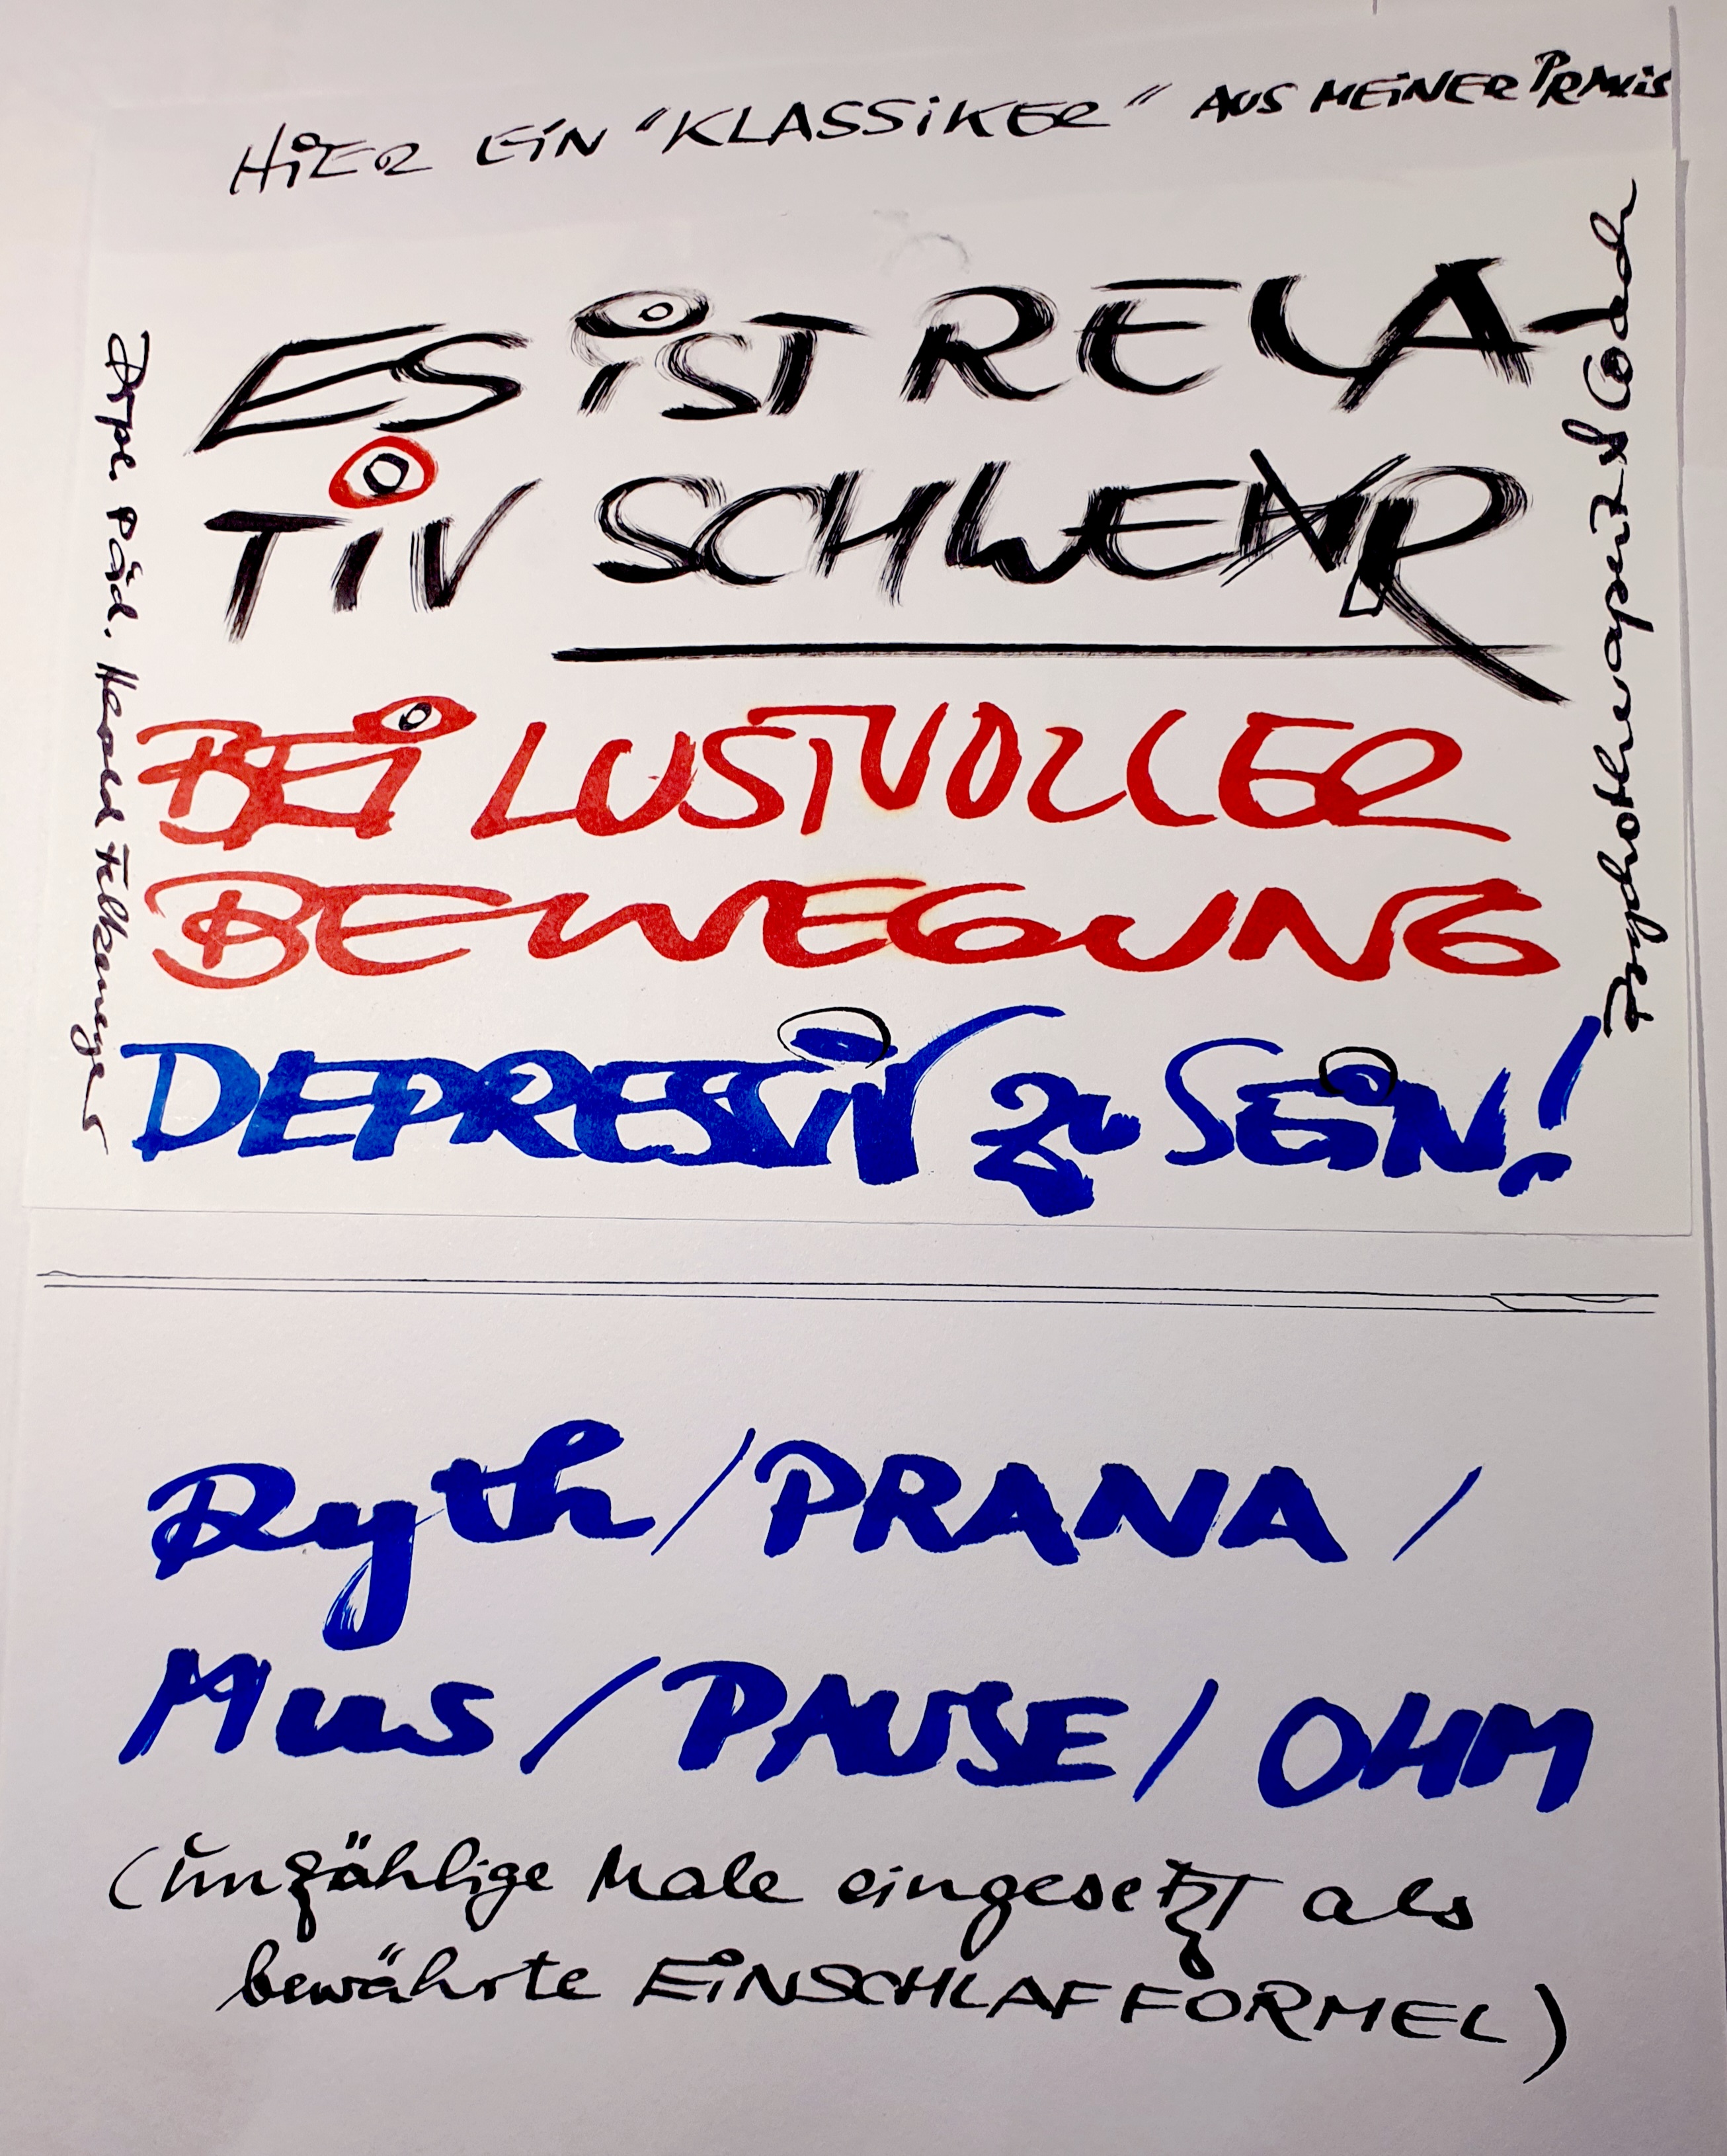 HiER EiN "KLASSiKER" AUS MEiNER PRAXiS
ES iST RELA-
TiV SCHWER
BEi LUSTVOLLER
BEWEGUNG
DEPRESSiV zu SEiN!
Dipl. Päd. Harald
Psychotherapeut & Coach
Ryth / PRANA /
Mus / PAUSE / OHM
(unzählige Male eingesetzt als
bewährte EiNSCHLAFFORMEL)